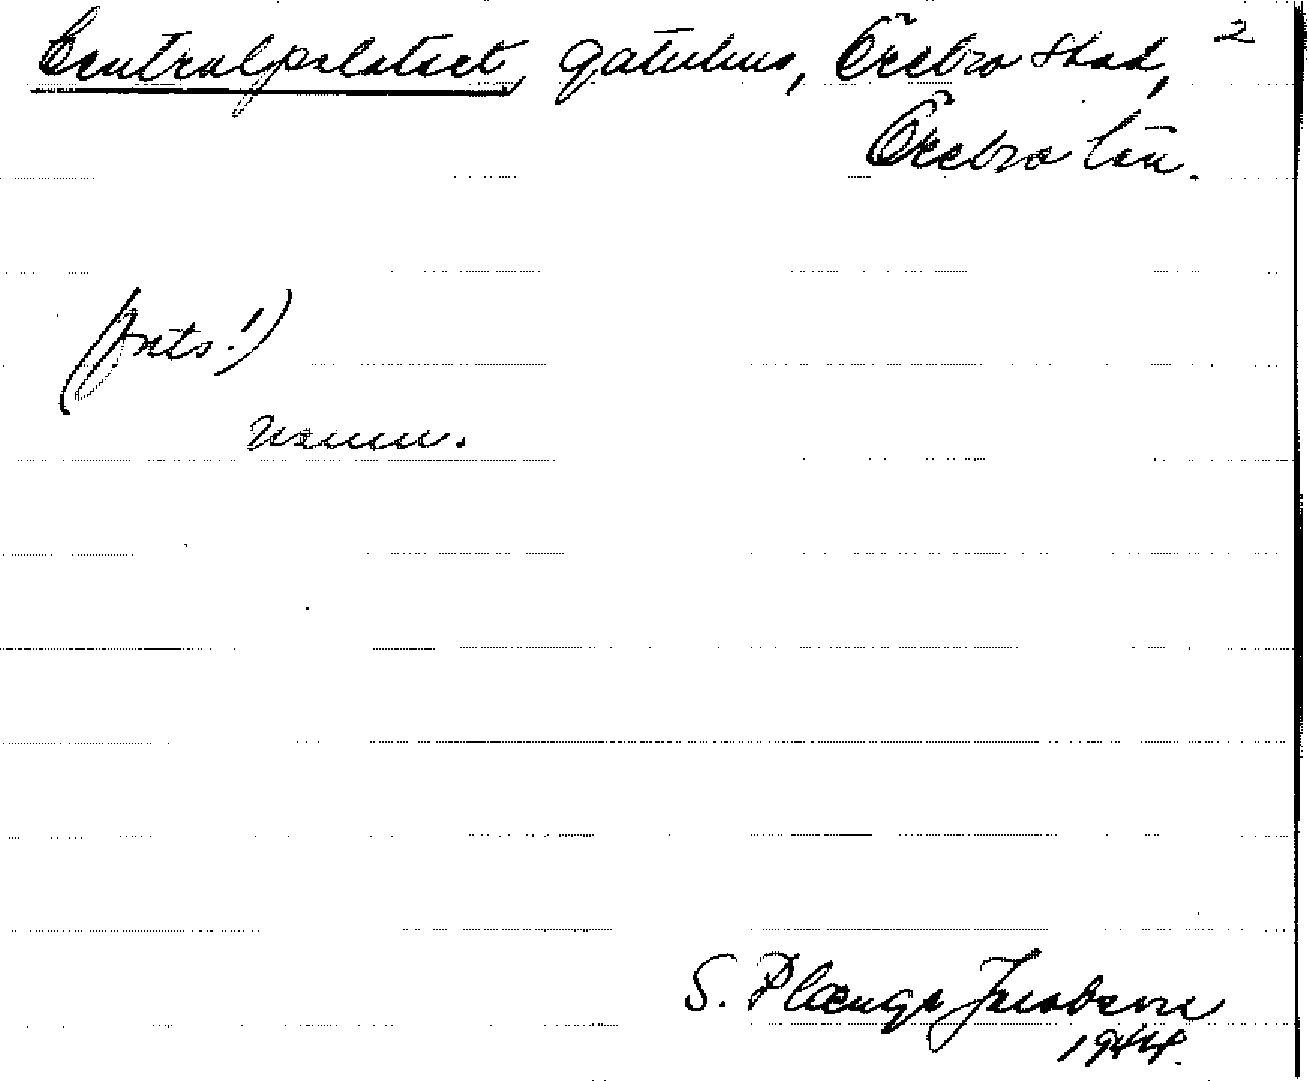 Centralpalatset, gatuhus, Örebro stad, 2
Örebro län.
(forts!)
namn.
S. Plænge Jacobson
1944.